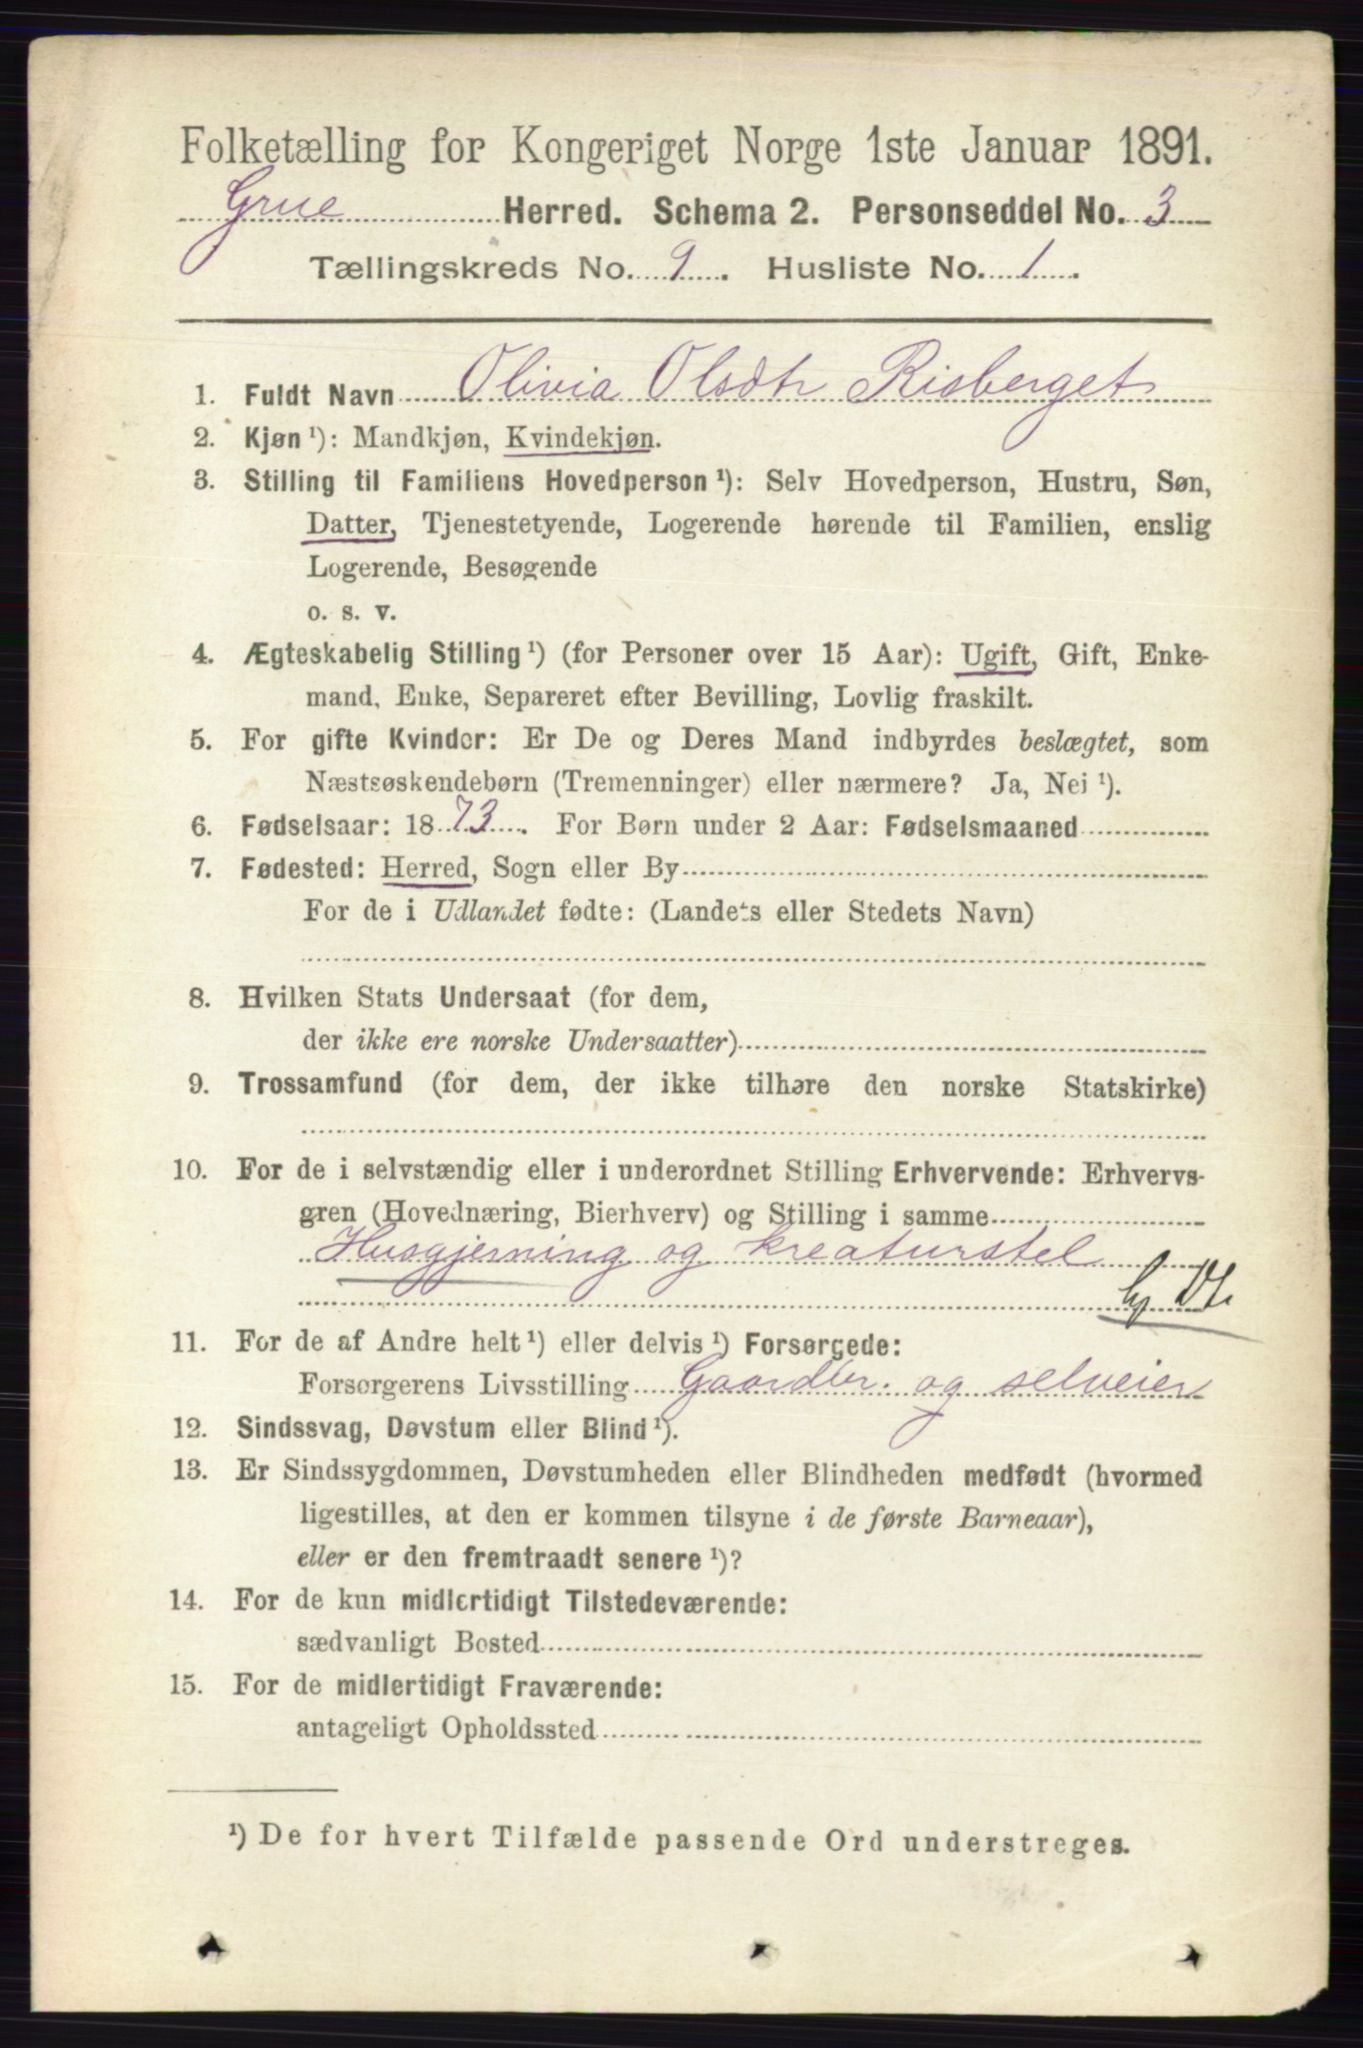 Folketælling for Kongeriget Norge 1ste Januar 1891.
Grue Herred. Schema 2. Personseddel No. 3
Tællingskreds No. 9. Husliste No. 1.
1. Fuldt Navn Olivia Olsdtr Risberget
2. Kjøn ¹): Mandkjøn, Kvindekjøn.
3. Stilling til Familiens Hovedperson ¹): Selv Hovedperson, Hustru, Søn,
Datter, Tjenestetyende, Logerende hørende til Familien, enslig
Logerende, Besøgende
o. s. v.
4. Ægteskabelig Stilling ¹) (for Personer over 15 Aar): Ugift, Gift, Enke-
mand, Enke, Separeret efter Bevilling, Lovlig fraskilt.
5. For gifte Kvinder: Er De og Deres Mand indbyrdes beslægtet, som
Næstsøskendebørn (Tremenninger) eller nærmere? Ja, Nei ¹).
6. Fødselsaar: 1873. For Børn under 2 Aar: Fødselsmaaned
7. Fødested: Herred, Sogn eller By
For de i Udlandet fødte: (Landets eller Stedets Navn)
8. Hvilken Stats Undersaat (for dem,
der ikke ere norske Undersaatter)
9. Trossamfund (for dem, der ikke tilhøre den norske Statskirke)
10. For de i selvstændig eller i underordnet Stilling Erhvervende: Erhvervs-
gren (Hovednæring, Bierhverv) og Stilling i samme
Husgjerning og kreaturstel
11. For de af Andre helt ¹) eller delvis ¹) Forsørgede:
Forsørgerens Livsstilling Gaardbr. og selveier
12. Sindssvag, Døvstum eller Blind ¹).
13. Er Sindssygdommen, Døvstumheden eller Blindheden medfødt (hvormed
ligestilles, at den er kommen tilsyne i de første Barneaar),
eller er den fremtraadt senere ¹)?
14. For de kun midlertidigt Tilstedeværende:
sædvanligt Bosted
15. For de midlertidigt Fraværende:
antageligt Opholdssted
¹) De for hvert Tilfælde passende Ord understreges.